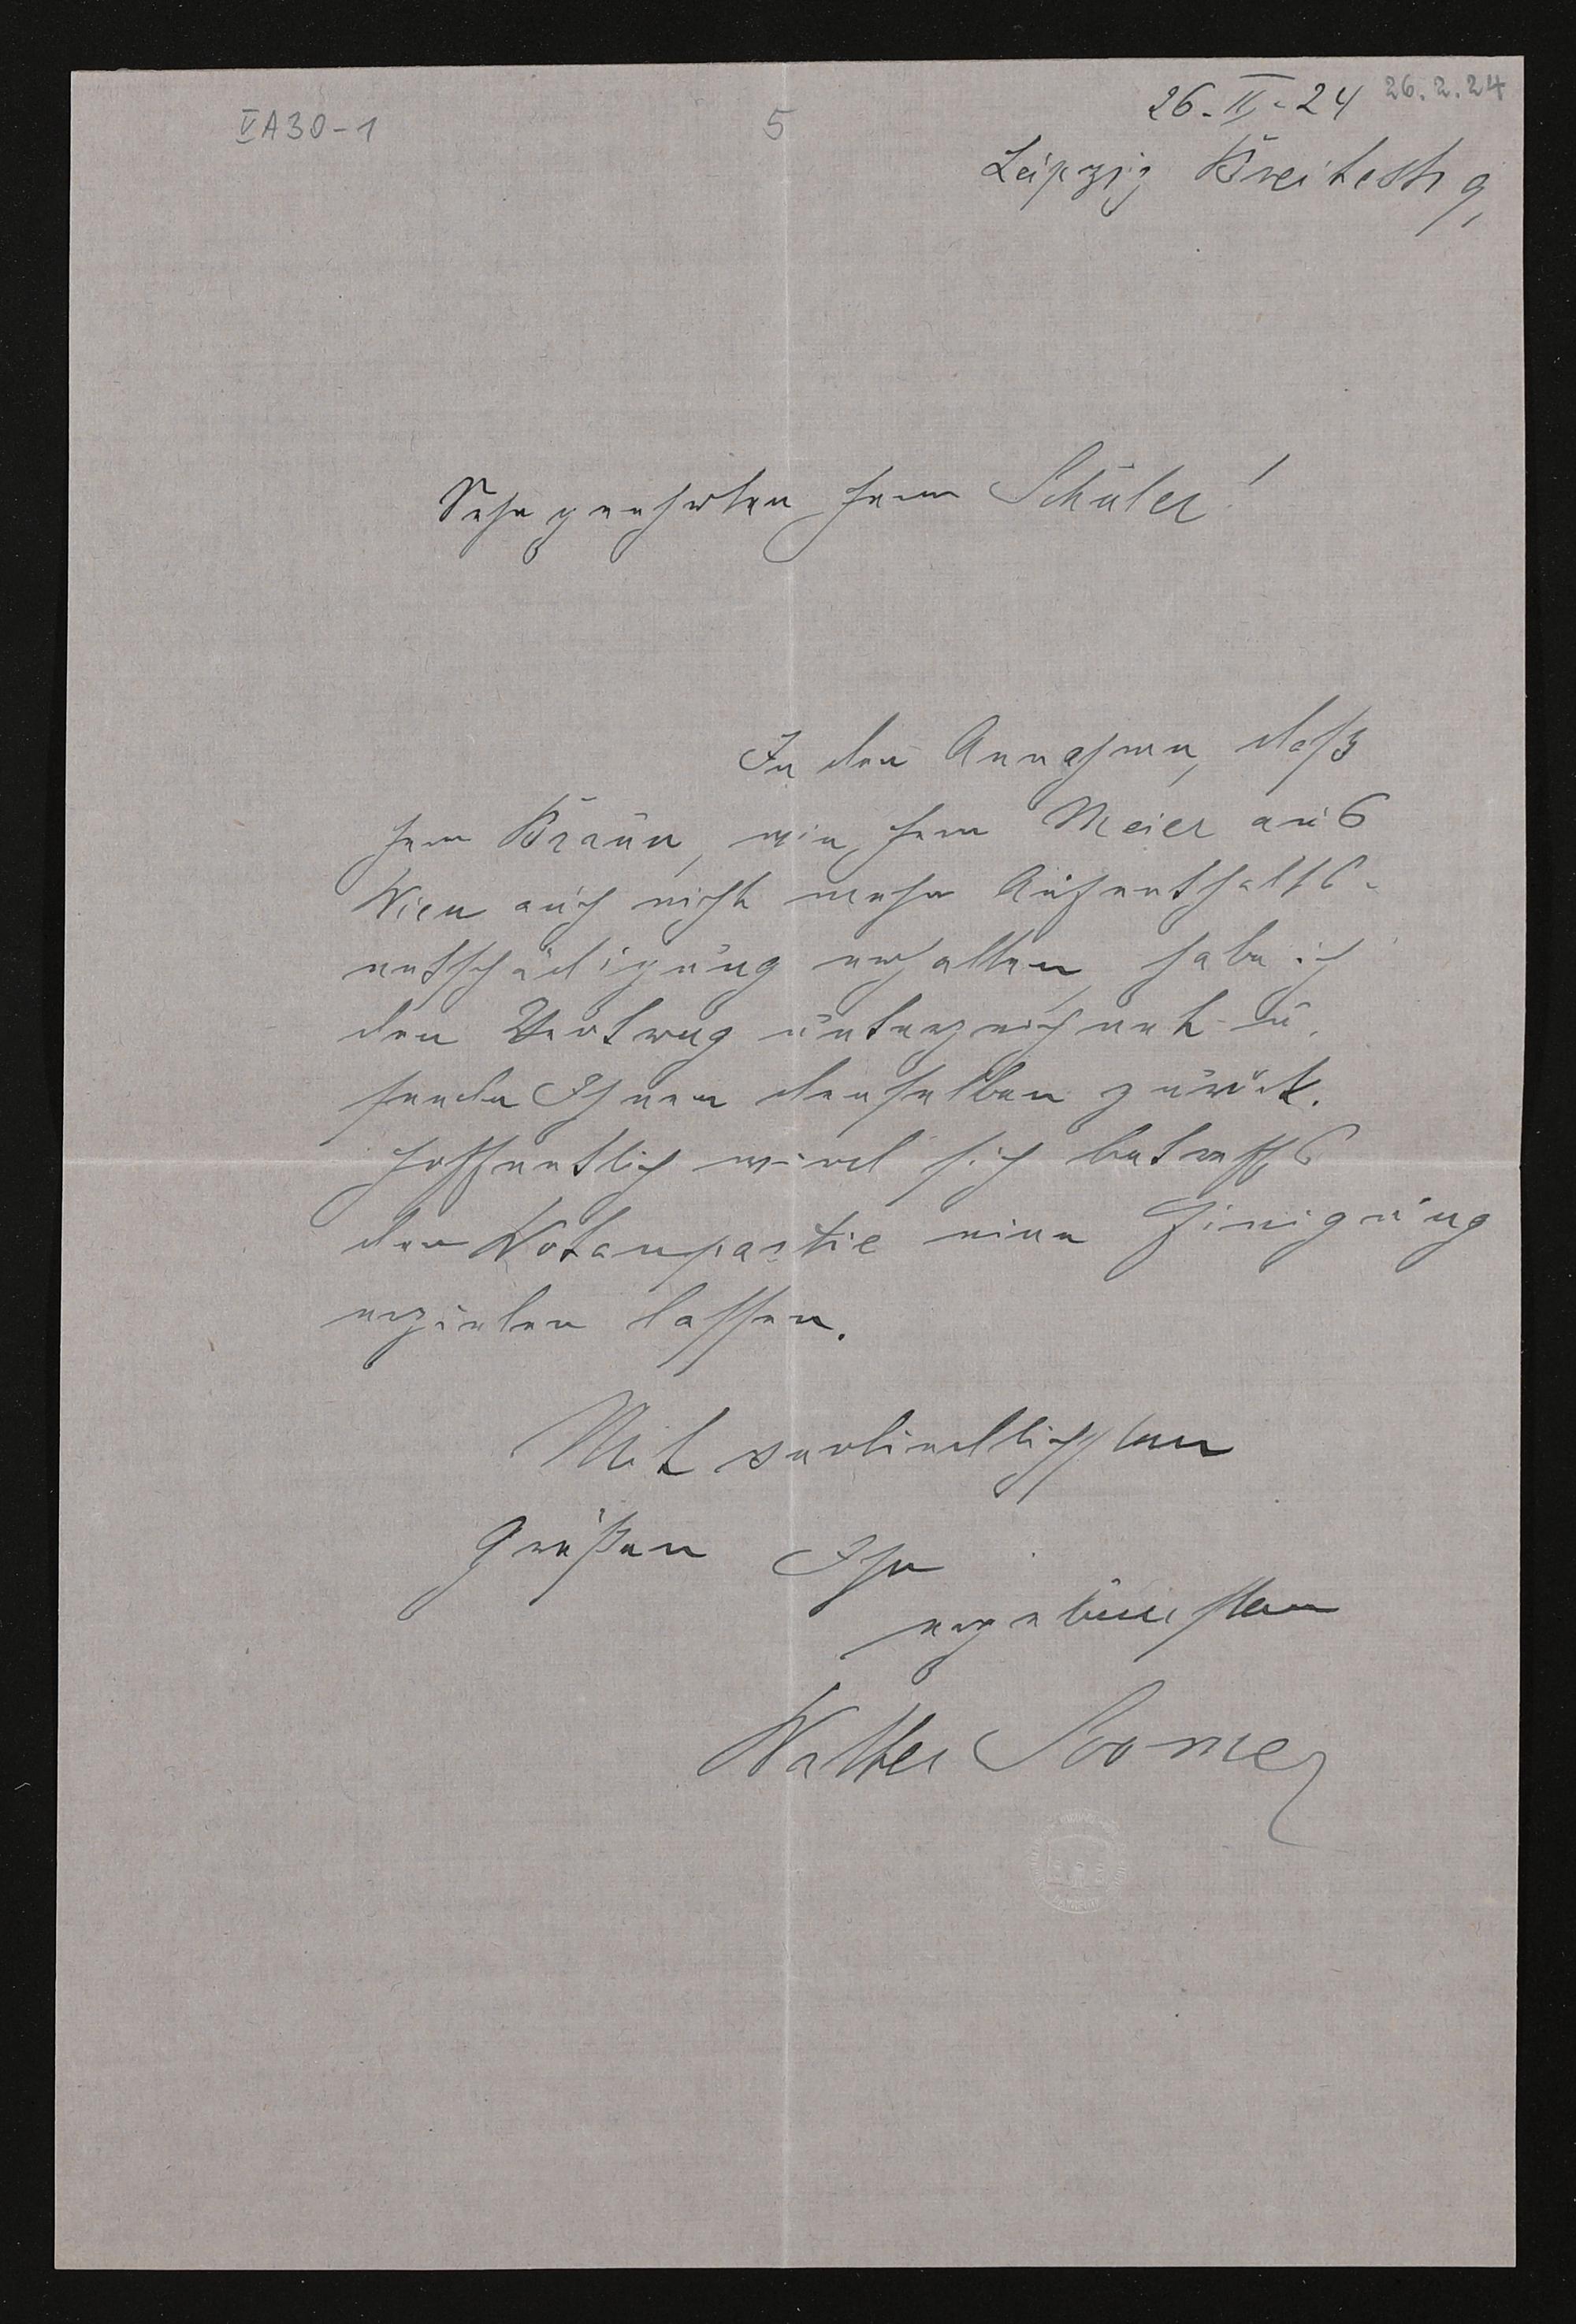 26.2.24
V A 30-1
5
26.II.24
Leipzig Breitestr 9,
Sehr geehrter Herr Schüler!
In der Annahme, daß
Herr Braun, wie Herr Meier aus
Wien auch nicht mehr Aufenthalts-
entschädigung erhalten, habe ich
den Vertrag unterzeichnet u.
sende Ihnen denselben zurück.
Hoffentlich wird sich betreffs
der Wotanpartie eine Einigung
erzielen lassen.
Mit verbindlichsten
Grüßen Ihr
ergebenster
Walter Soomer